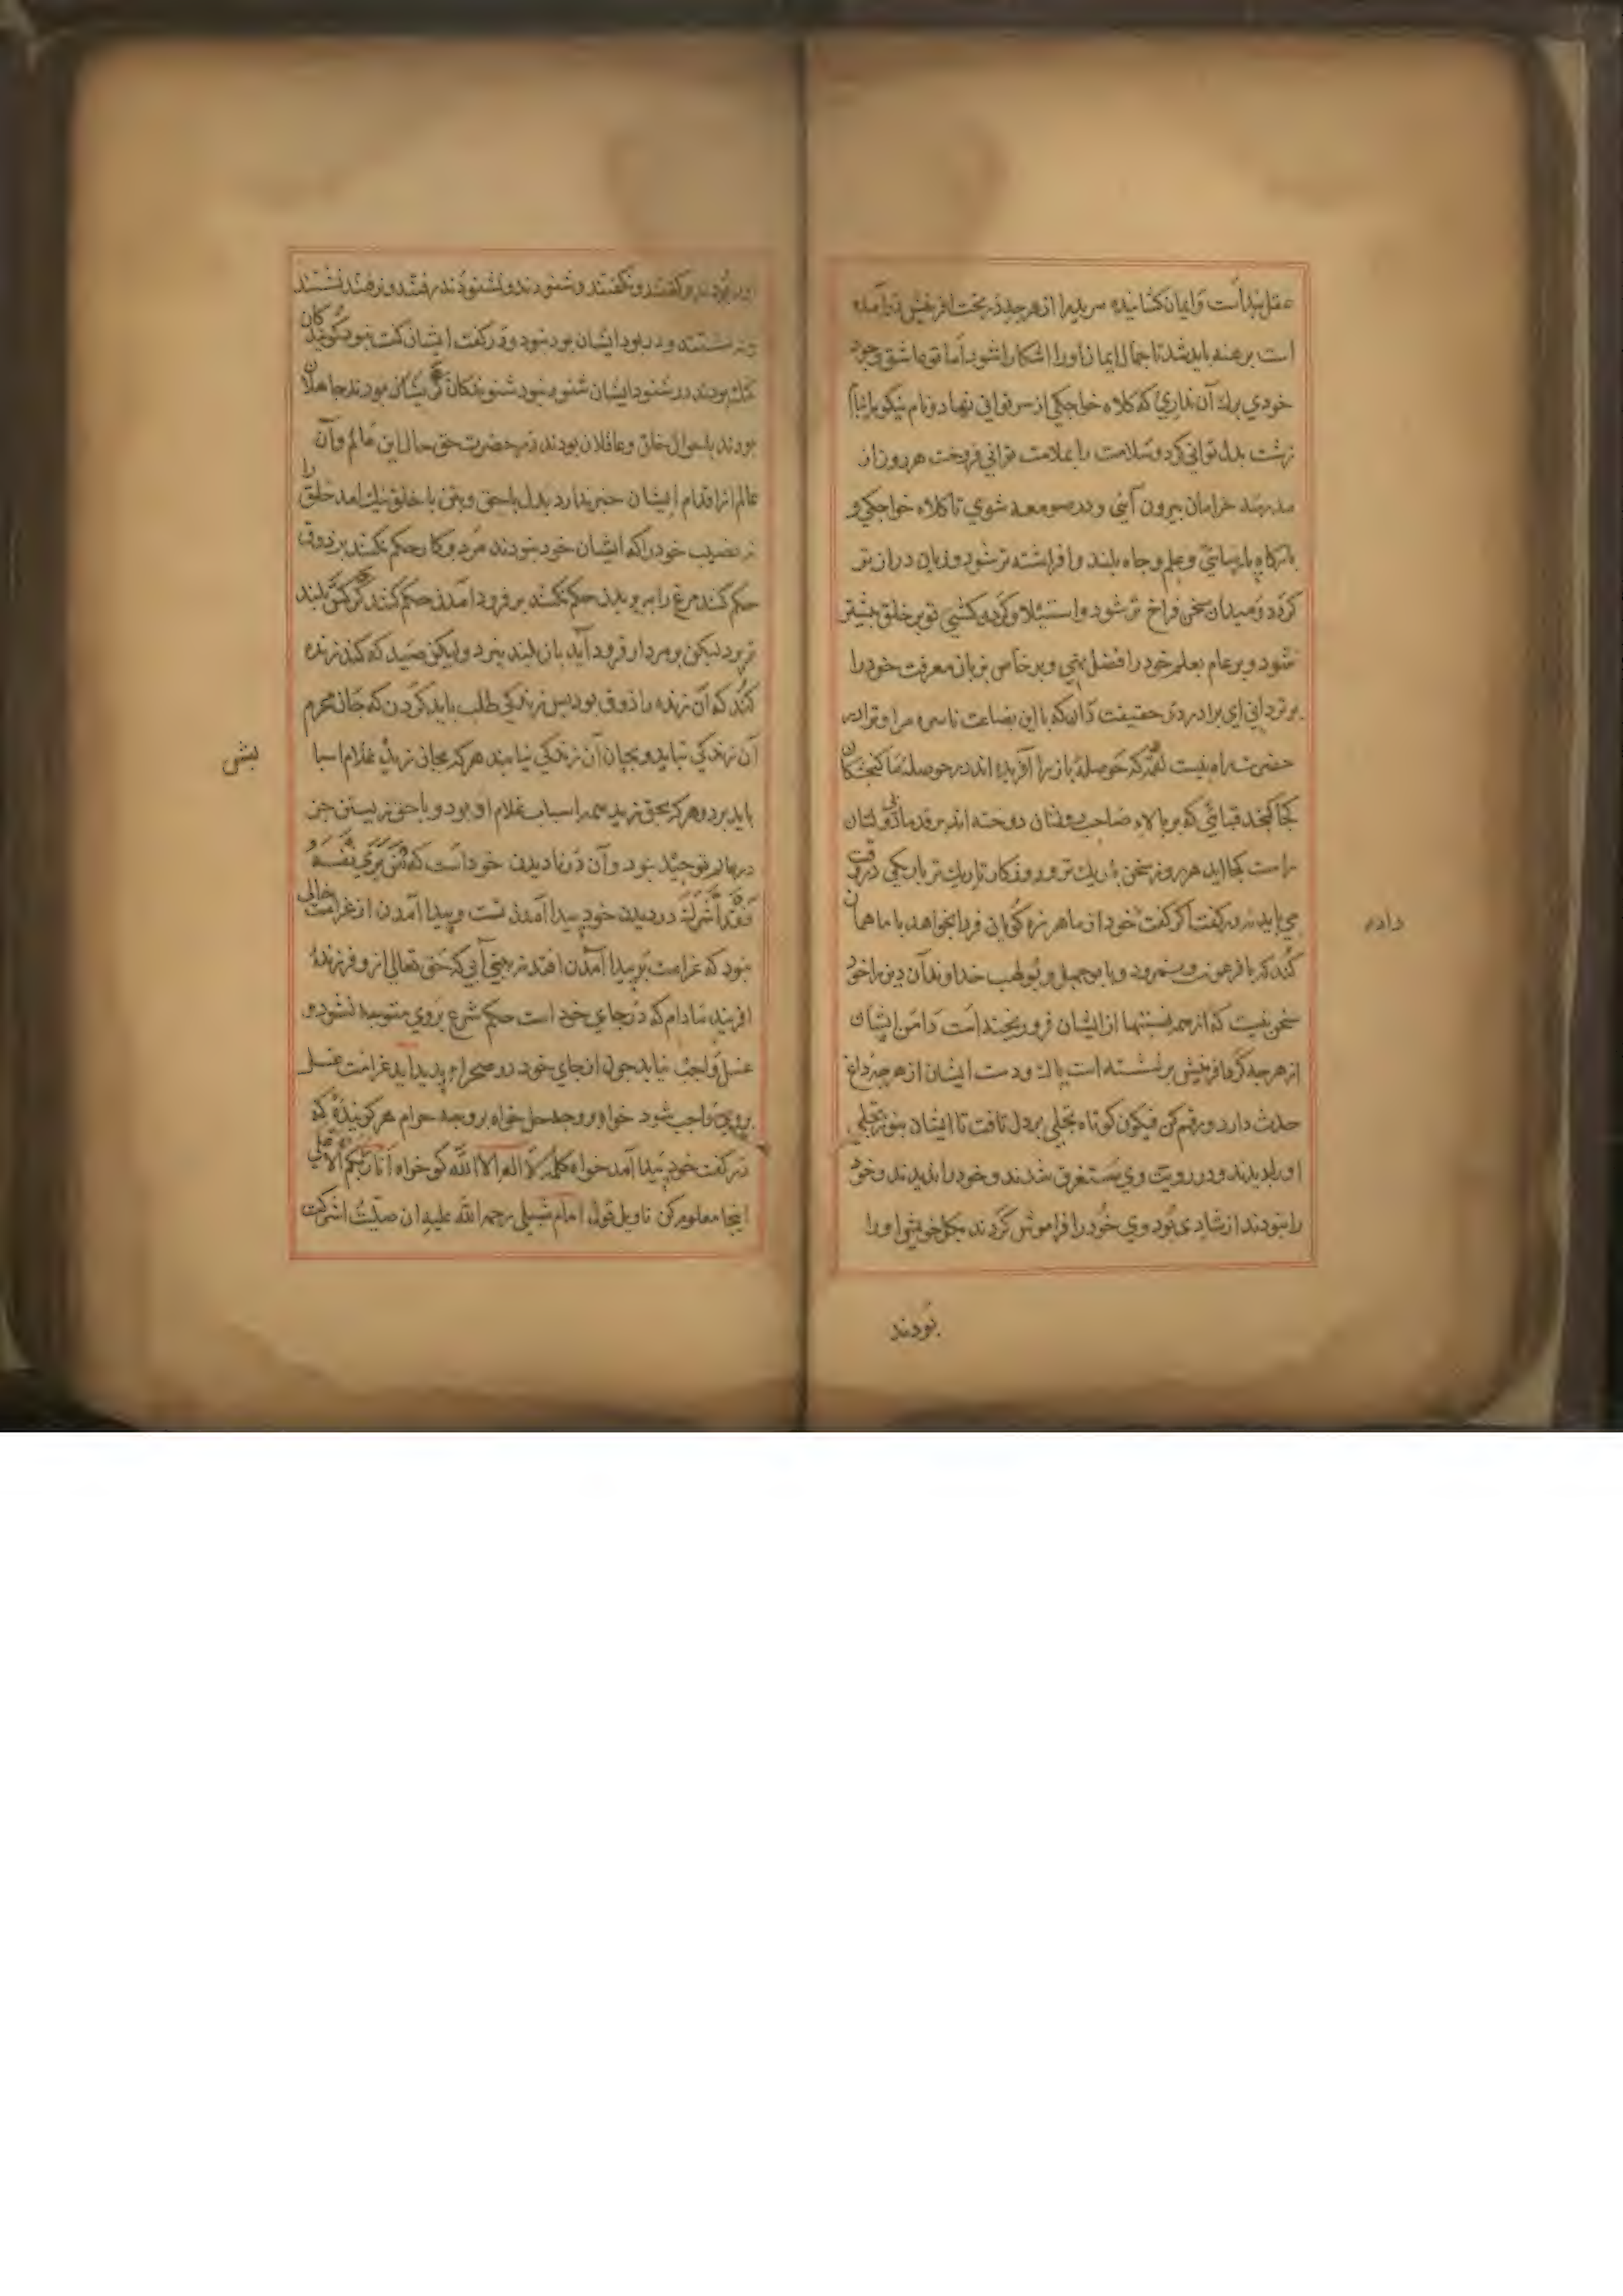 عقل بند است وایمان کشاننده مریدرا از هرچه در تحت افرینش در آمده
است برهنه باید شد تا جمال ایمان اورا اشکارا شود اما تو عاشق وجود
خودي برك آن نداري که کلاه خواجکي از سر توانی نهاد و نام نیکو
زشت بدل توانی کرد وسلامت را بملامت توانی فروخت هر روز از
مدرسه خرامان بیرون آیی ودر صومعه شوي تا کلاه خواجکي و
پارسایي وعلم وجاه بلند وافراشته تر شود وزبان دراز تر
کردد ومیدان سخن فراخ تر شود واستیلا تو بر خلق بیشتر
شود وبر عام بعلم خود را فضل نهي وبر خاص بزبان معرفت خود را
برتر دانی اي برادر در حقیقت دان که با این بضاعت ناسره مرا وترا در
حضرت راه نیست که حوصله باز را آفریده اند در حوصله ما کنجشکان
کجا کنجد قبائي که بر بالاء صاحب دوخته اند بر قد ما
راست کجا اید هر روز سخن باریك تر و روزکار تاریك تر باریکي در
می باید نه در کفت اکر کفت خود از ما هرزه کویان فردا بخواهد با ما همان
کند که با فرعون ونمرود وبا بوجهل وبولهب خداوندان دین را خود
سخن نیست که از همه ایشان فرو ریخته است دامن ایشان
از هرچه کرد افرینش بر نشسته است پاك ودست ایشان از هرچه داغ
حدث دارد ورقم کن فیکون کوتاه تجلی بر دل تافت تا ایشان بنور تجلی
اورا بدیدند ودر رویت وي مستغرق شدند وخود را ندیدند وخود
را نبودند از شادی بود وي خود را فراموش کردند بکل خویش اورا
بودند
داده
بودند کفتند ونکفتند وشنودند ونشنودند رفتند ونرفتند نشستند
ونه نشستند ودر بود ایشان بود نبود ودر کفت ایشان کفت نبود کویندکان
کنك بودند در شنود ایشان شنود نبود شنوندکان کر بودند جاهلان
بودند باحوال خلق وعاقلان بودند در حضرت حق حال این عالم وآن
عالم از اقدام ایشان خبر ندارد بدل با حق وبتن با خلق نیك امد خلق را
نصیب خود را که ایشان خود نبودند مردوکار حکم نکنند بر ذوق
حکم کنند مرغ را بر پریدن حکم نکنند بر فرود آمدن حکم کنند کرکس بلند
تر پرد لیکن بر مردار فرود آید باز بلند نپرد ولیکن صید که کند زنده
کند که آن زنده را ذوق بود پس زندکي طلب باید کردن که جان محرم
آن زندکي نیاید وبجان آن زندکي نیابند هرکه بجانی زید غلام اسبا
باید بود وهرکه بحق زید همه اسباب غلام او بود وبا حق زیستن جز
در عالم توحید نبود وآن در نادیدن خود است که مَن یَري نَفسَهُ
فَقَد اَشرَكَ در دیدن خود پیدا آمدن تست وپیدا آمدن از غرامت خالی
نبود که غرامت بر پیدا آمدن افتد نه بینی آبی که حق تعالي ازو فرزند
افریند مادام که در جاي خود است حکم شرع بروي متوجه نشود و
غسل واجب نیاید چون از جاي خود در صحرا پدید آید غرامت غسل
بروي واجب شود خواه بر وجه حل خواه بر وجه حرام هر کوینده که
در کفت خود پیدا آمد خواه کلمه لا اله الا الله کو خواه انا ربکم الاعلي
اینجا معلوم کن تاویل قول امام شبلي رحمه الله علیه ان صلیت اشرکت
بشی